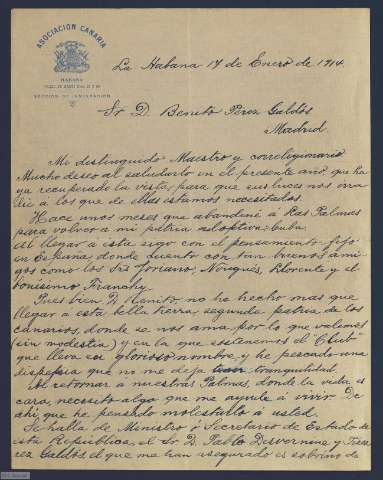 ASOCIACIÓN CANARIA
HABANA
SECCIÓN DE INMIGRACIÓN
La Habana 17 de Enero de 1914.
Sr D. Benito Pérez Galdós
Madrid.
Mi distinguido Maestro y correligionario
Mucho deseo al saludarlo en el presente año que ha
ya recuperado la vista para que sus luces nos irra
die á los que de ellas estamos necesitados.
Hace unos meses que abandoné á Las Palmas
para volver a mi patria adoptiva: Cuba.
Al llegar á esta sigo con el pensamiento fijo
en España, donde cuento con tan buenos ami
gos como los Sres Soriano, Nougués, Llorente y el
bonísimo Franchy.
Pues bien D. Benito, no he hecho mas que
llegar á esta bella tierra segunda patria de los
canarios, donde se nos ama por lo que valemos
(sin modestia) y en la que sostenemos el "Club"
que lleva su glorioso nombre, y he pescado una
dispepsia que no me deja tranquilidad.
Al retornar a nuestras Palmas, donde la vida es
cara, necesito algo que me ayude á vivir. De
ahí, que he pensado molestarlo á usted.
Se halla de Ministro ó Secretario de Estado de
esta República, el Sr D. Pablo Desvernine y
rez Galdós el que me han asegurado es sobrino de